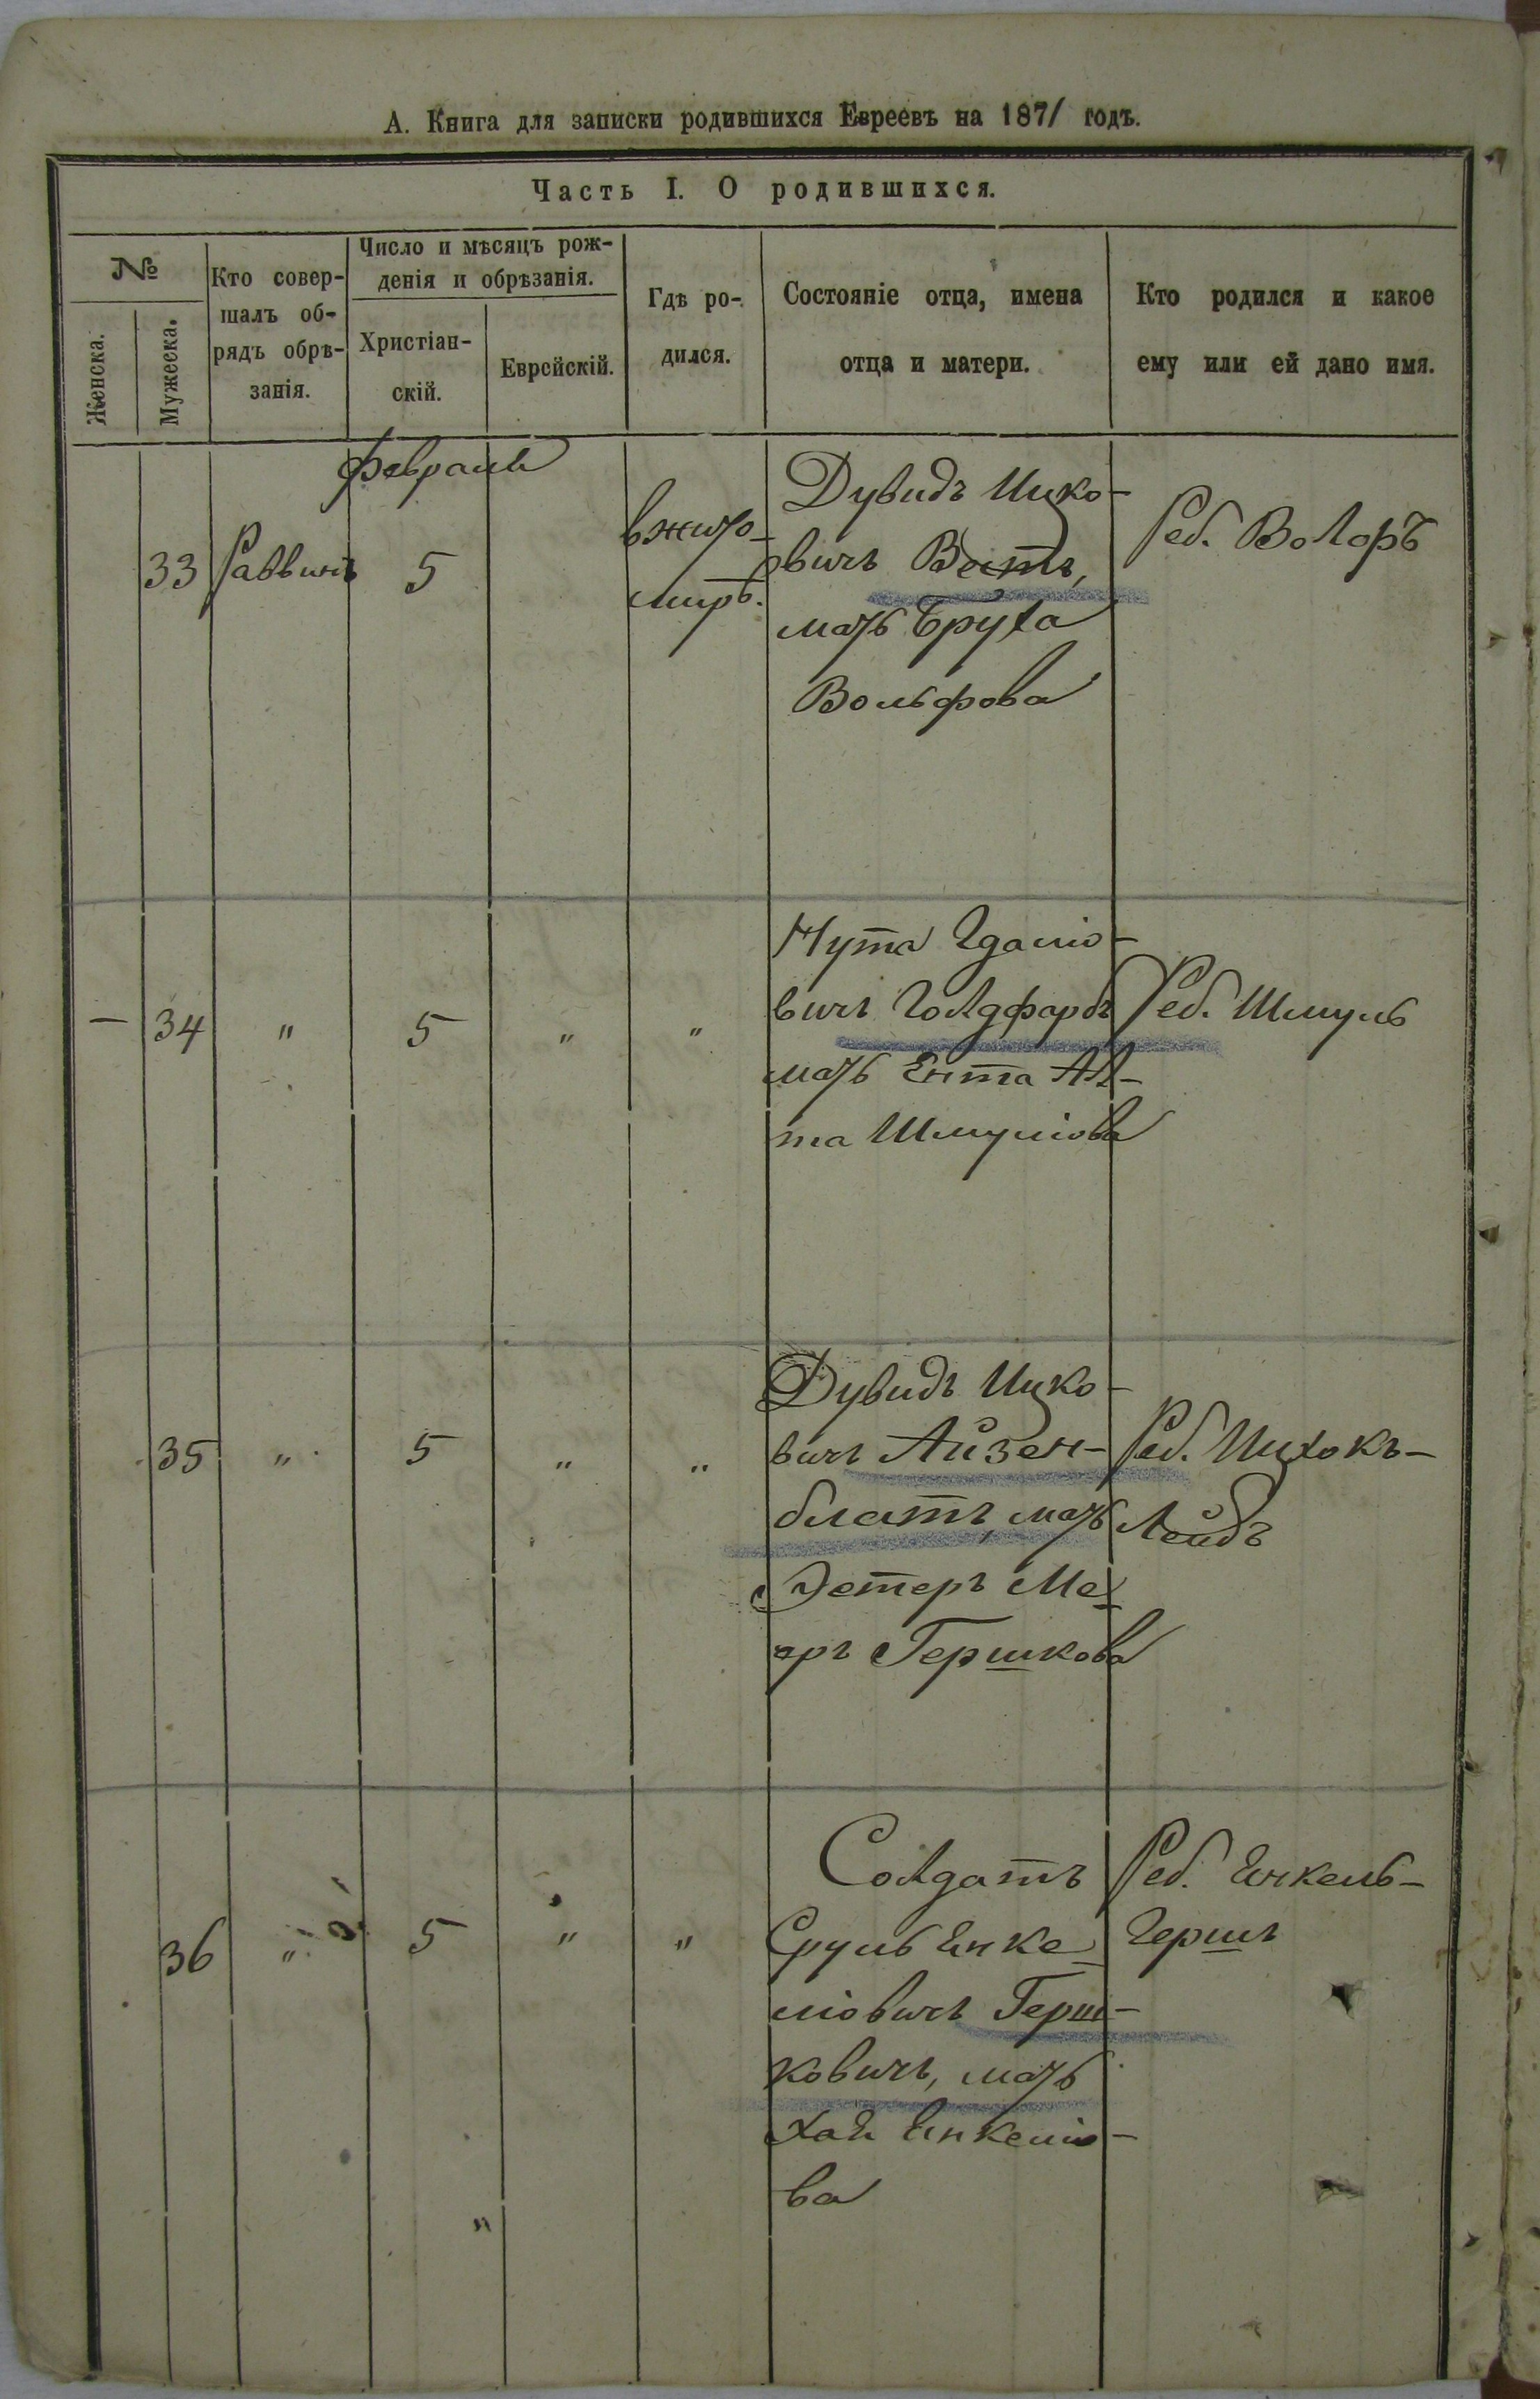 А. Книга для записки родившихся Евреевъ на 1871 годъ.
Часть I. О родившихся.
№
Женска.
Мужеска.
Кто совер-
шалъ об-
рядъ обрѣ-
занія.
Число и мѣсяцъ рож-
денія и обрѣзанія.
Христіан-
скій.
Еврейскій.
Гдѣ ро-
дился.
Состояніе отца, имена
отца и матери.
Кто родился и какое
ему или ей дано имя.
февраль
33
Раввинъ
5
в жито-
мирѣ.
Дувидъ Ицко-
вичъ Вестъ,
мать Бруха
Вольфова
Реб. Волоръ
—
34
"
5
"
"
Нута Гдаліо-
вичъ Голдфарбъ
мать Ента Ал-
та Шмуліова
Реб. Шмуль
35
"
5
"
"
Дувидъ Ицко-
вичъ Айзен-
блатъ, мать
Эстеръ Ме-
еръ Гершкова
Реб. Ицхокъ-
Лейбъ
36
"
5
"
"
Солдатъ
Сруль Янке
ліовичъ Герш-
ковичъ, мать
Хая Янкеліо-
ва
Реб. Янкель-
Гершъ
"